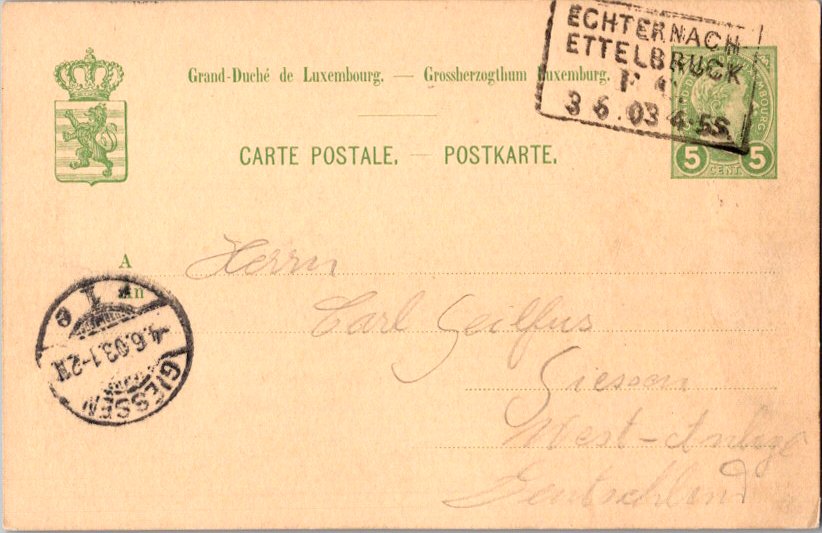 ECHTERNACH-
ETTELBRUCK
3 6. 03 4-55
Grand-Duché de Luxembourg. — Grossherzogthum Luxemburg.
CARTE POSTALE. — POSTKARTE.
5 CENT. 5
A
An
Herrn
Carl Seilfus
Giessen
West-Anlage
Deutschland
GIESSEN
4.6.03.1-2N